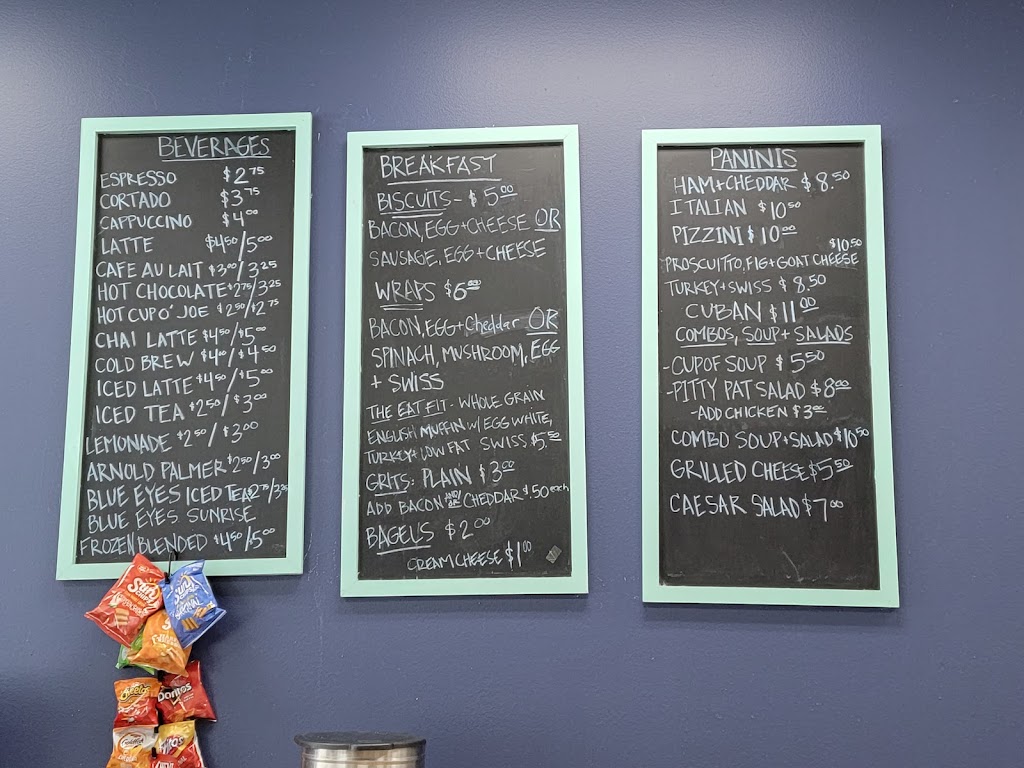 BEVERAGES
ESPRESSO $2.75
CORTADO $3.75
CAPPUCCINO $4.00
LATTE $4.50/5.00
CAFE AU LAIT $3.00/3.25
HOT CHOCOLATE $2.75/3.25
HOT CUP O' JOE $2.50/$2.75
CHAI LATTE $4.50/$5.00
COLD BREW $4.00/$4.50
ICED LATTE $4.50/$5.00
ICED TEA $2.50/$3.00
LEMONADE $2.50/$3.00
ARNOLD PALMER $2.50/3.00
BLUE EYES ICED TEA $2.75/3.25
BLUE EYES SUNRISE
FROZEN BLENDED $4.50/5.00
BREAKFAST
BISCUITS - $5.00
BACON, EGG + CHEESE OR
SAUSAGE, EGG + CHEESE
WRAPS $6.00
BACON, EGG + Cheddar OR
SPINACH, MUSHROOM, EGG
+ SWISS
THE EAT FIT - WHOLE GRAIN
ENGLISH MUFFIN W/ EGG WHITE,
TURKEY + LOW FAT SWISS $5.50
GRITS: PLAIN $3.00
ADD BACON AND/OR CHEDDAR $.50 each
BAGELS $2.00
CREAM CHEESE $1.00
PANINIS
HAM + CHEDDAR $8.50
ITALIAN $10.50
PIZZINI $10.00
PROSCUITTO, FIG + GOAT CHEESE $10.50
TURKEY + SWISS $8.50
CUBAN $11.00
COMBOS, SOUP + SALADS
- CUP OF SOUP $5.50
- PITTY PAT SALAD $8.00
- ADD CHICKEN $3.00
COMBO SOUP + SALAD $10.50
GRILLED CHEESE $5.50
CAESAR SALAD $7.00
Sun
Doritos